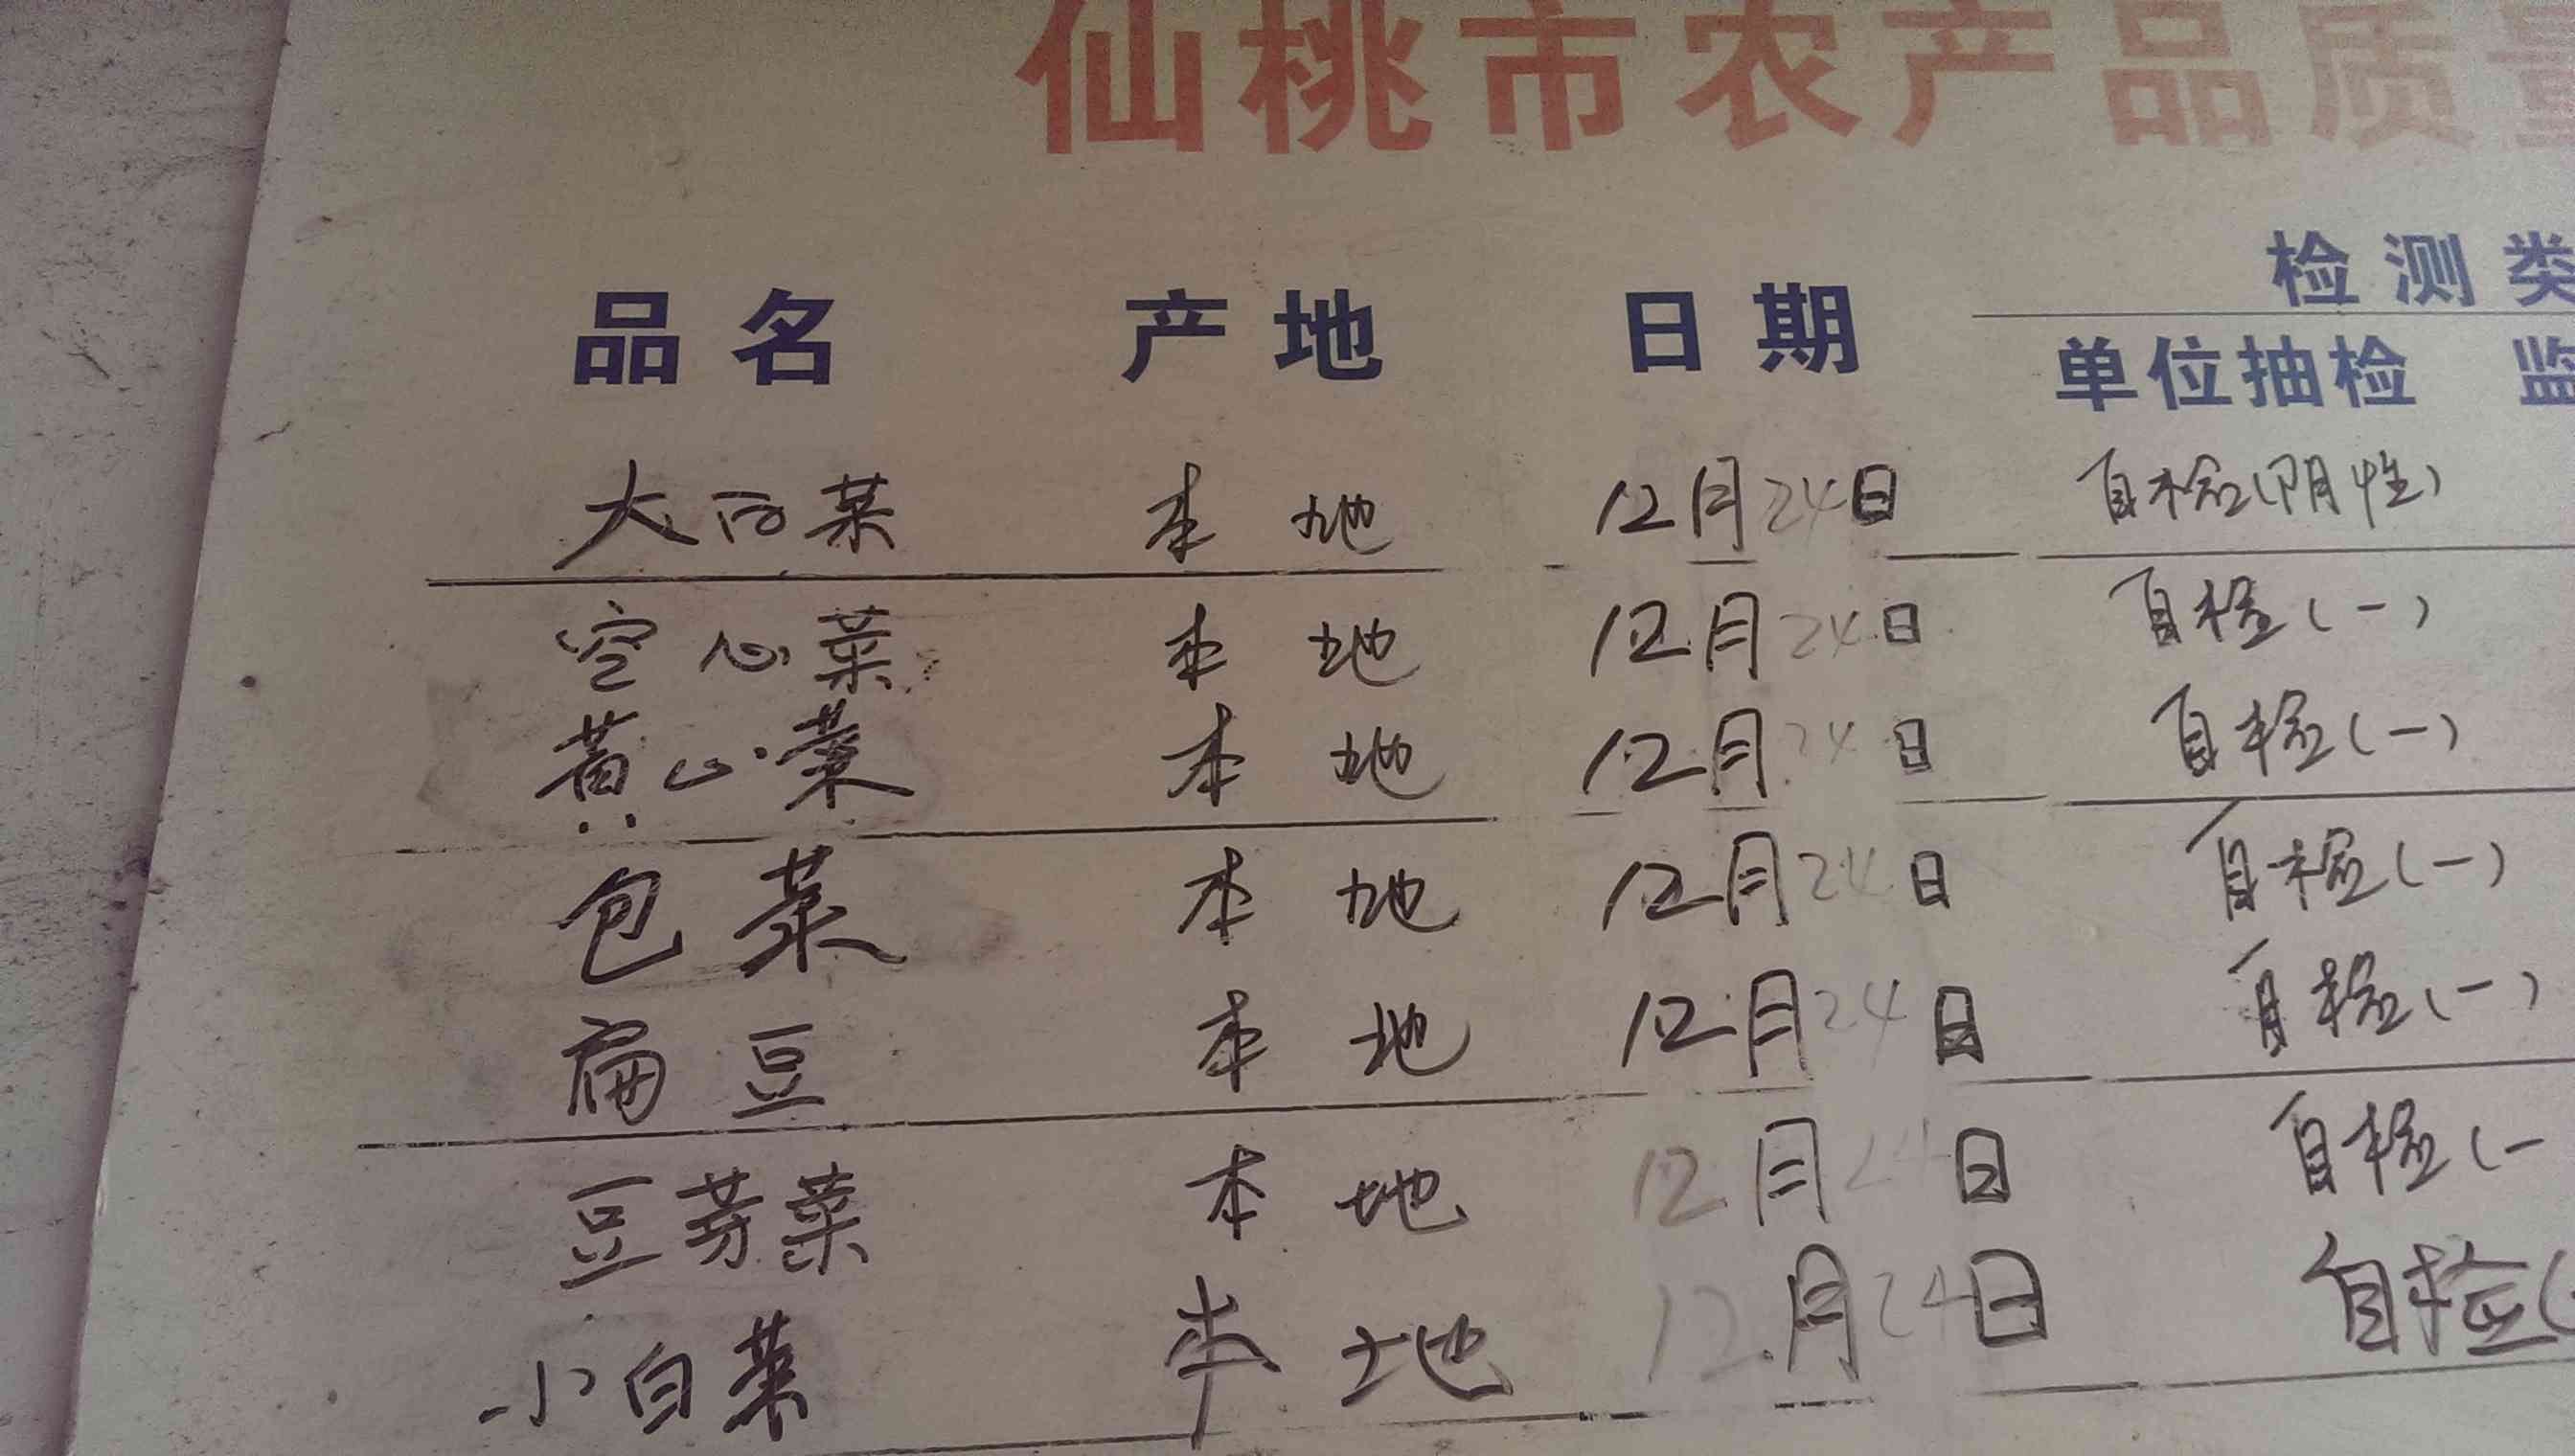 仙桃市农产品质量
检测类
品名 产地 日期 单位抽检 监
大白菜 本地 12月24日 自检(阴性)
空心菜 本地 12月24日 自检(一)
黄心菜 本地 12月24日 自检(一)
包菜 本地 12月24日 自检(一)
扁豆 本地 12月24日 自检(一)
豆芽菜 本地 12月24日 自检(一
小白菜 本地 12月24日 自检(